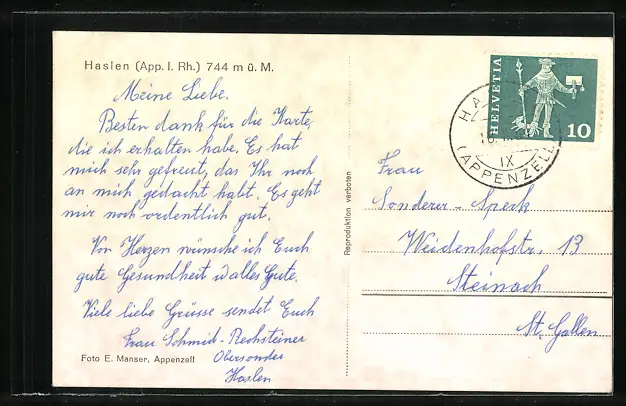 Haslen (App. I. Rh.) 744 m ü. M.
Meine Liebe.
Besten dank für die Karte,
die ich erhalten habe. Es hat
mich sehr gefreut, das Ihr noch
an mich gedacht habt. Es geht
mir noch ordentlich gut.
Von Herzen wünsche ich Euch
gute Gesundheit u alles Gute.
Viele liebe Grüsse sendet Euch
Frau Schmid-Rechsteiner
Obersonder
Haslen
Foto E. Manser, Appenzell
Reproduktion verboten
HELVETIA
10
HA
IX
(APPENZELL)
Frau
Sonderer-Speck
Weidenhofstr. 13
Steinach
St. Gallen